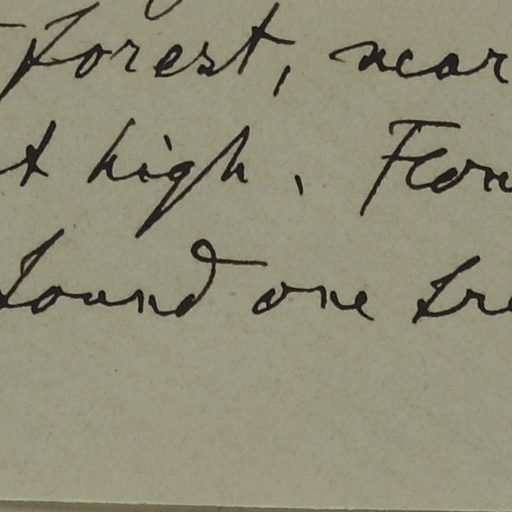 forest, near
t high. Flow
found one tre